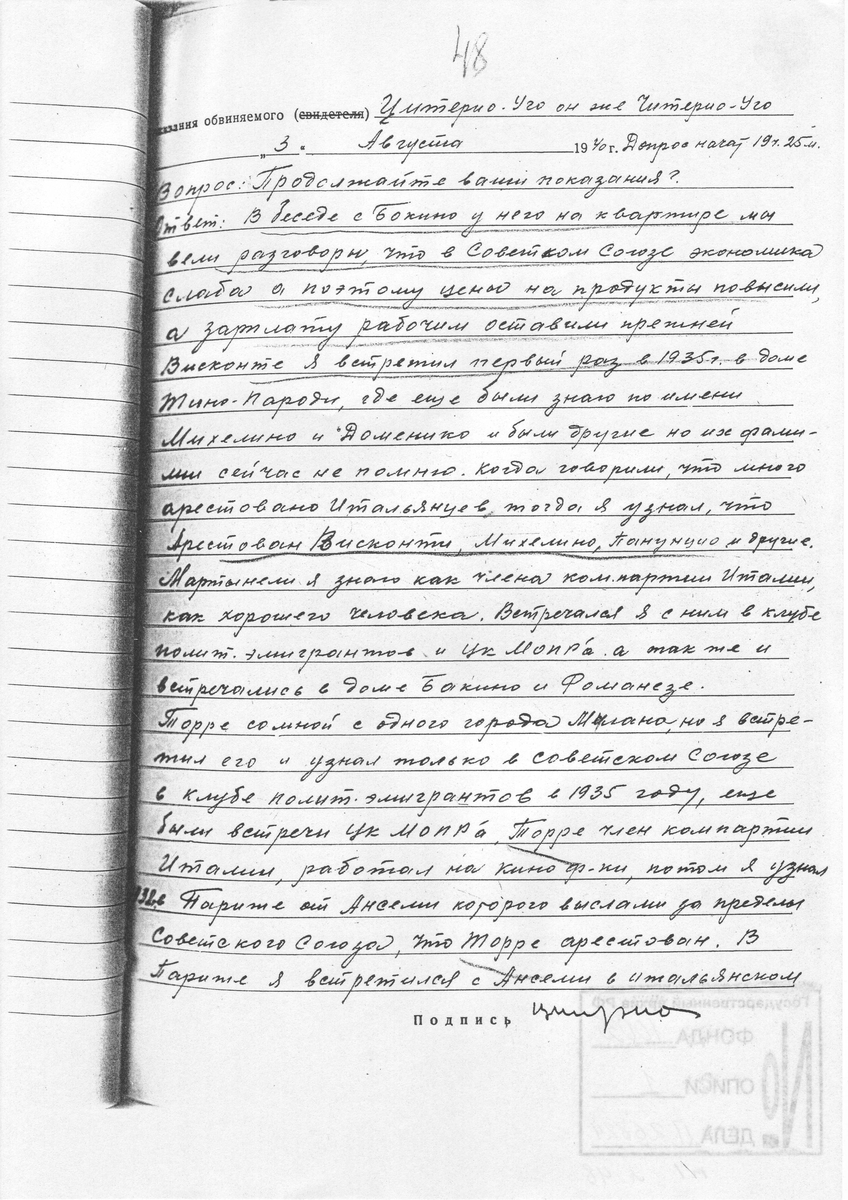 48
казания обвиняемого (свидетеля) Цитерио-Уго он же Читерио-Уго
„ 3 “ Августа 1940 г. Допрос начат 19 ч. 25 м.
Вопрос: Продолжайте ваши показания?
Ответ: В беседе с Бокино у него на квартире мы
вели разговоры, что в Советском Союзе экономика
слаба а поэтому цены на продукты повысили,
а зарплату рабочим оставили прежней
Висконте я встретил первый раз в 1935 г. в доме
Тино-Пароди, где еще были знаю по имени
Михелино и Доменико и были другие но их фами-
лии сейчас не помню. Когда говорили, что много
арестовано Итальянцев, тогда я узнал, что
Арестован Висконти, Михелино, Панунцио и другие.
Мартынели я знаю как члена компартии Италии,
как хорошего человека. Встречался я с ним в клубе
полит. эмигрантов и ЦК МОПР'а. а так же и
встречались в доме Бакино и Романезе.
Торре сомной с одного города Милано, но я встре-
тил его и узнал только в Советском Союзе
в клубе полит. эмигрантов в 1935 году, еще
были встречи ЦК МОПР'а, Торре член компартии
Италии, работал на кино ф-ки, потом я узнал
в Париже от Ансели которого выслали за пределы
Советского Союза, что Торре арестован. В
Париже я встретился с Ансели в итальянском
Подпись
Государственный архив РФ
ФОНДА
ОПИСИ 1
ДЕЛА
№